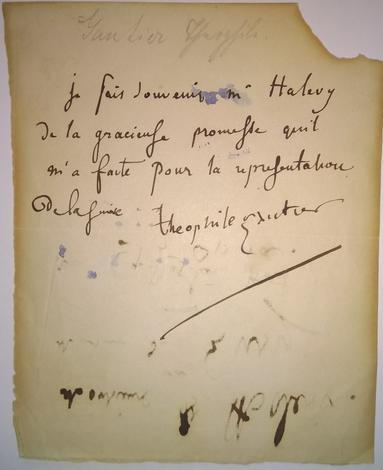 Gautier Théophile.
je fais souvenir mr Halevy
de la gracieuse promesse qu'il
m'a faite pour la representation
De la juive theophile gautier